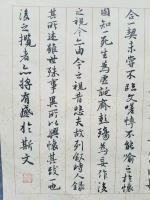 合一契未嘗不臨文嗟悼不能喻之於懷
固知一死生為虛誕齊彭殤為妄作後
之視今亦由今之視昔悲夫故列敘時人錄
其所述雖世殊事異所以興懷其致一也
後之攬者亦將有感於斯文